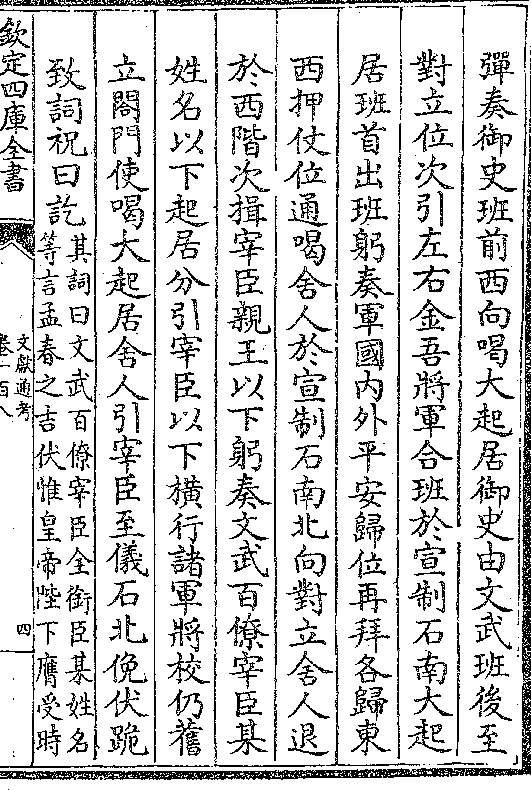 彈奏御史班前西向喝大起居御史由文武班後至
對立位次引左右金吾將軍合班於宣制石南大起
居班首出班躬奏軍國內外平安歸位再拜各歸東
西押仗位通喝舍人於宣制石南北向對立舍人退
於西階次揖宰臣親王以下躬奏文武百僚宰臣某
姓名以下起居分引宰臣以下橫行諸軍將校仍舊
立閤門使喝大起居舍人引宰臣至儀石北俛伏跪
致詞祝曰訖
其詞曰文武百僚宰臣全銜臣某姓名
等言孟春之吉伏惟皇帝陛下膺受時
欽定四庫全書
文獻通考
卷一百八
四